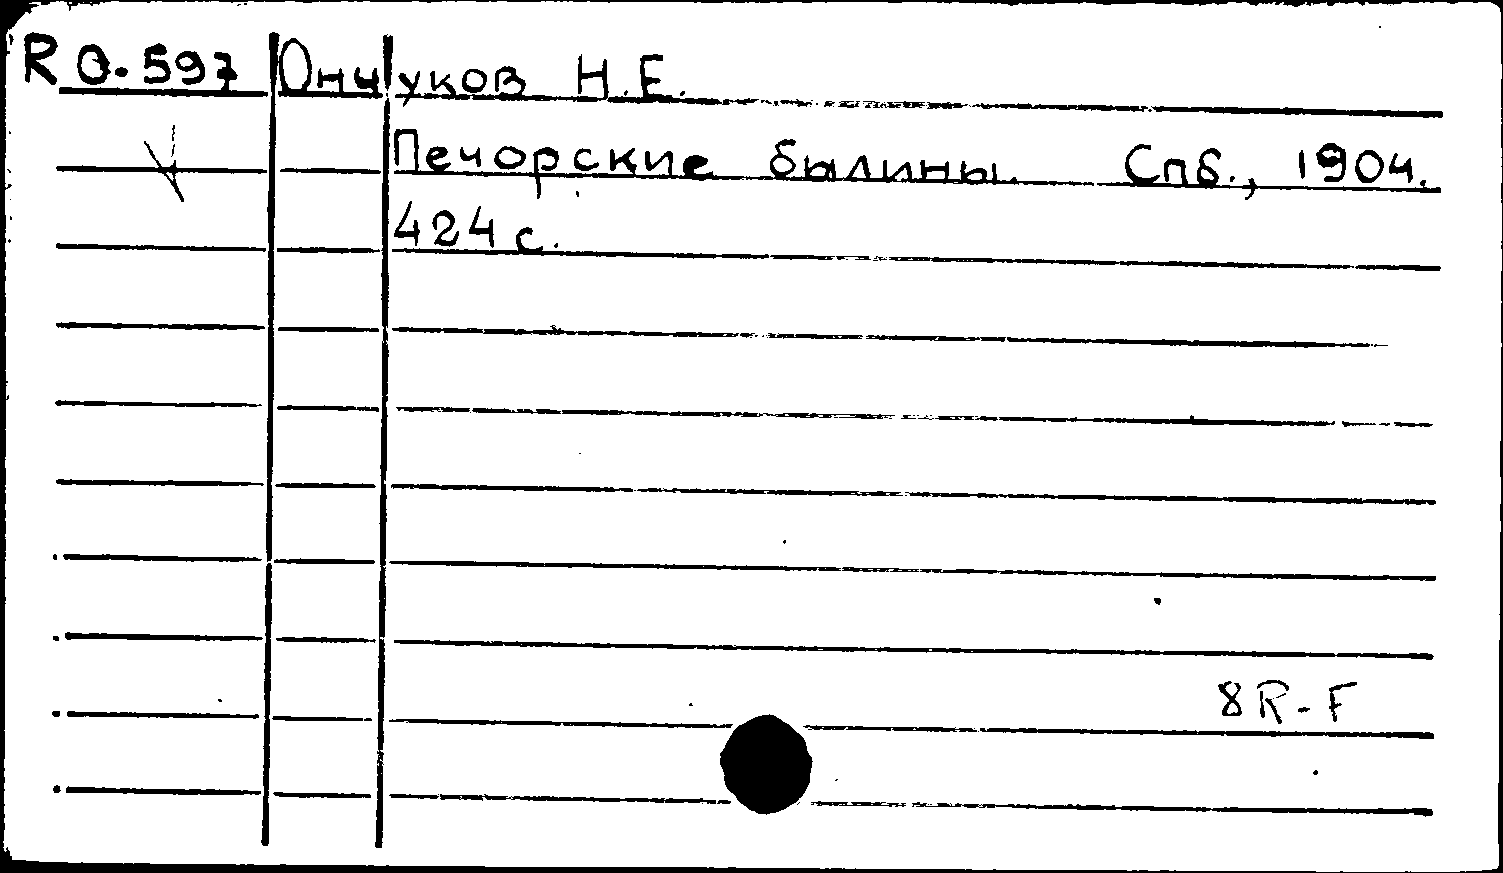 R O.597 Ончуков Н.Е.
Печорские былины. Спб., 1904.
424 с.
8R-F